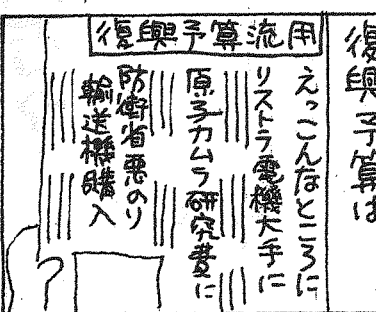 復興予算は
復興予算流用
えっこんなところに
リストラ電機大手に
原子力ムラ研究費に
防衛省悪のり
輸送機購入
?